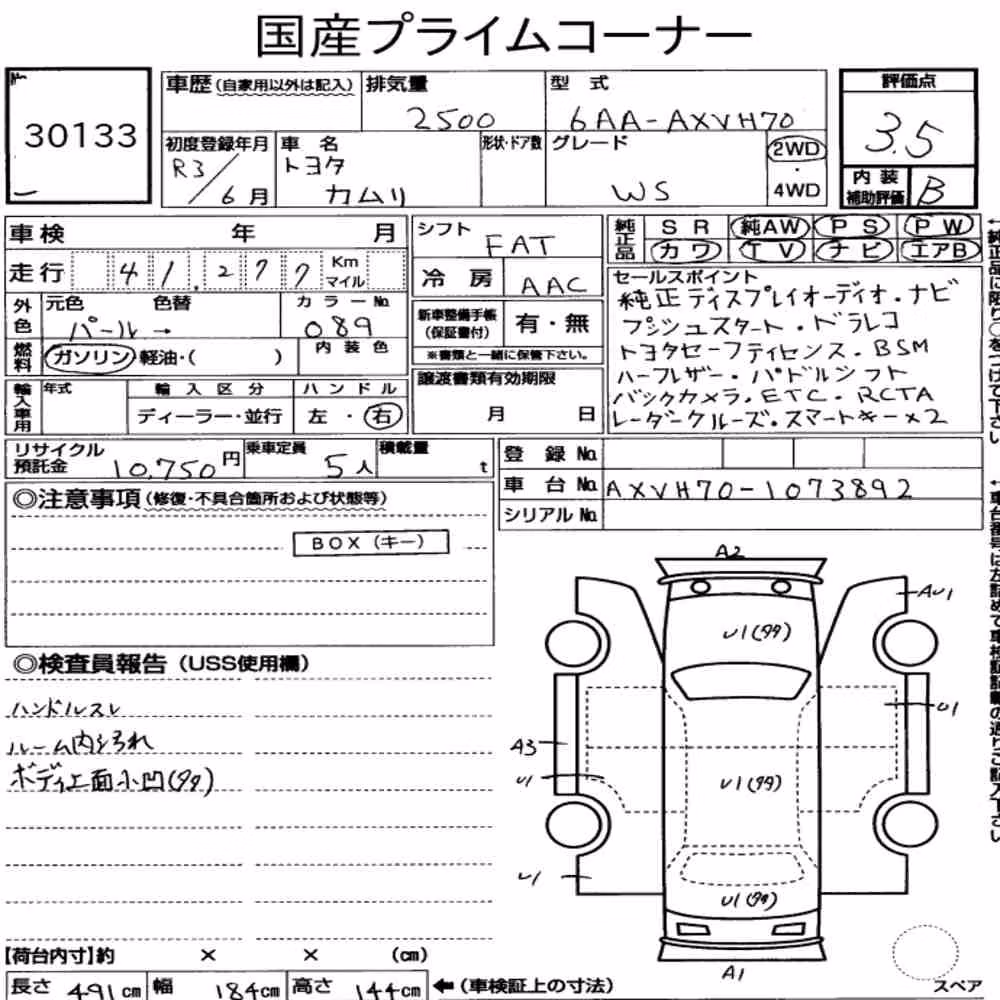 国産プライムコーナー
30133
車歴(自家用以外は記入) 排気量 2500 型式 6AA-AXVH70
評価点 3.5
内装補助評価 B
初度登録年月 R3/6月 車名 トヨタ カムリ 形状・ドア数 グレード WS 2WD ・ 4WD
車検 年 月
走行 41,277 Km マイル
外色 元色 パール → 色替 カラーNo. 089
燃料 ガソリン 軽油・( ) 内装色
輸入車用 年式 輸入区分 ディーラー・並行 ハンドル 左・右
シフト FAT
冷房 AAC
新車整備手帳(保証書付) 有・無
※書類と一緒に保管下さい。
譲渡書類有効期限 月 日
純正品 SR 純AW PS PW
カワ TV ナビ エアB
セールスポイント
純正ディスプレイオーディオ・ナビ
プッシュスタート・ドラレコ
トヨタセーフティセンス・BSM
ハーフレザー・パドルシフト
バックカメラ・ETC・RCTA
レーダークルーズ・スマートキー×2
リサイクル預託金 10,750円 乗車定員 5人 積載量 t
登録No.
車台No. AXVH70-1073892
シリアルNo.
◎注意事項(修復・不具合箇所および状態等)
BOX(キー)
◎検査員報告(USS使用欄)
ハンドルスレ
ルーム内汚れ
ボディ上面小凹(タタ)
A2
AU1
U1(タタ)
U1
A3
U1
U1(タタ)
U1
U1(タタ)
A1
スペア
【荷台内寸】約 × × (cm)
長さ 491cm 幅 184cm 高さ 144cm ←(車検証上の寸法)
←純正品に限り○をつけて下さい